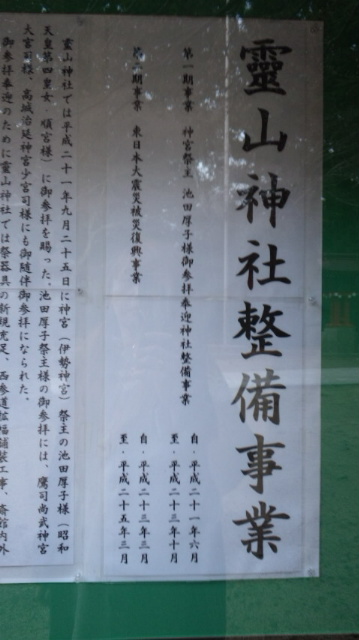 靈山神社整備事業
第一期事業 神宮祭主 池田厚子様御参拝奉迎神社整備事業
自・平成二十一年六月
至・平成二十三年十月
第二期事業 東日本大震災被災復興事業
自・平成二十三年三月
至・平成二十五年三月
靈山神社では平成二十一年九月二十五日に神宮（伊勢神宮）祭主の池田厚子様（昭和
天皇第四皇女 順宮様）に御参拝を賜った。池田厚子祭主様の御参拝には、鷹司尚武神宮
大宮司様、高城治延神宮少宮司様にも御随伴御参拝になられた。
御参拝奉迎のために靈山神社では祭器具の新規充足、西参道拡幅舗装工事、斎館内外